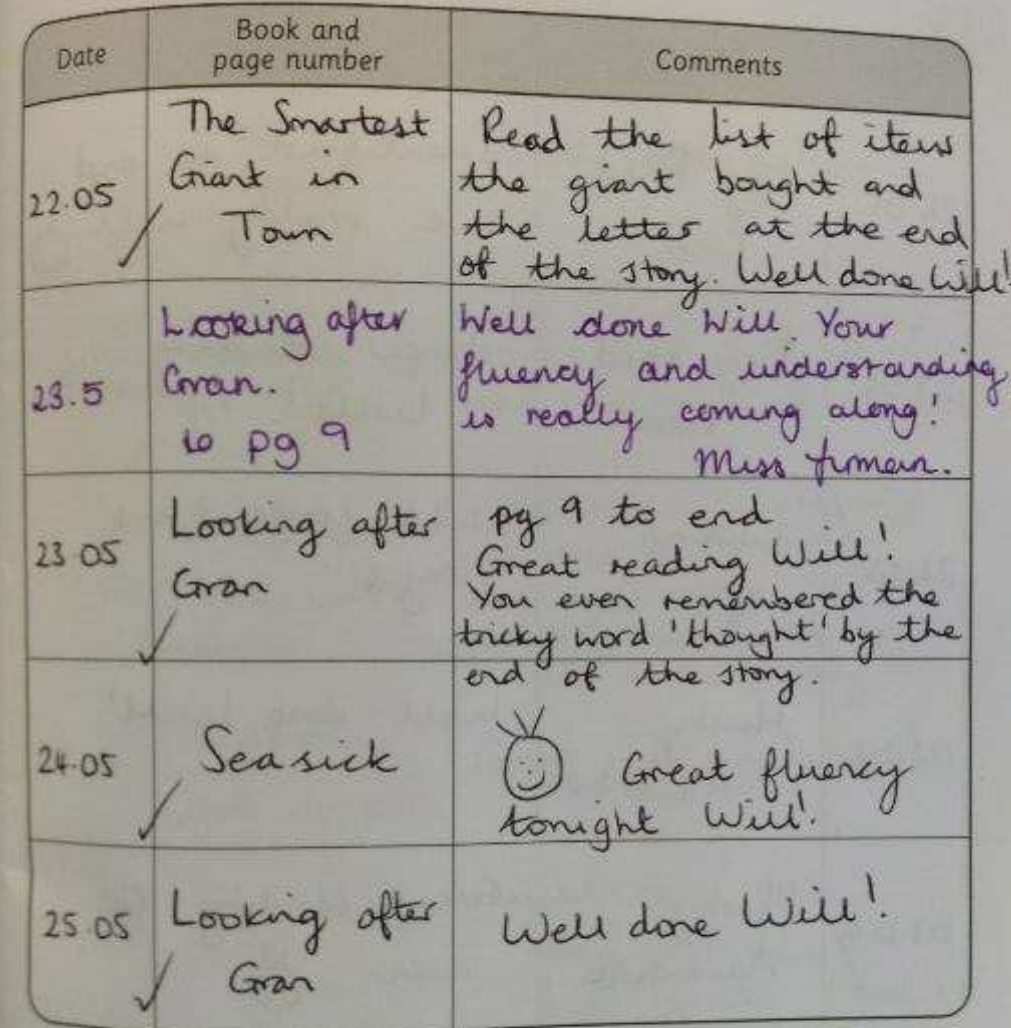 Date
Book and
page number
Comments
22.05
The Smartest
Giant in
Town
Read the list of items
the giant bought and
the letter at the end
of the story. Well done Will!
23.5
Looking after
Gran.
to pg 9
Well done Will. Your
fluency and understanding
is really coming along!
Miss
23 05
Looking after
Gran
pg 9 to end
Great reading Will!
You even remembered the
tricky word 'thought' by the
end of the story.
24.05
Seasick
Great fluency
tonight Will!
25.05
Looking after
Gran
Well done Will!